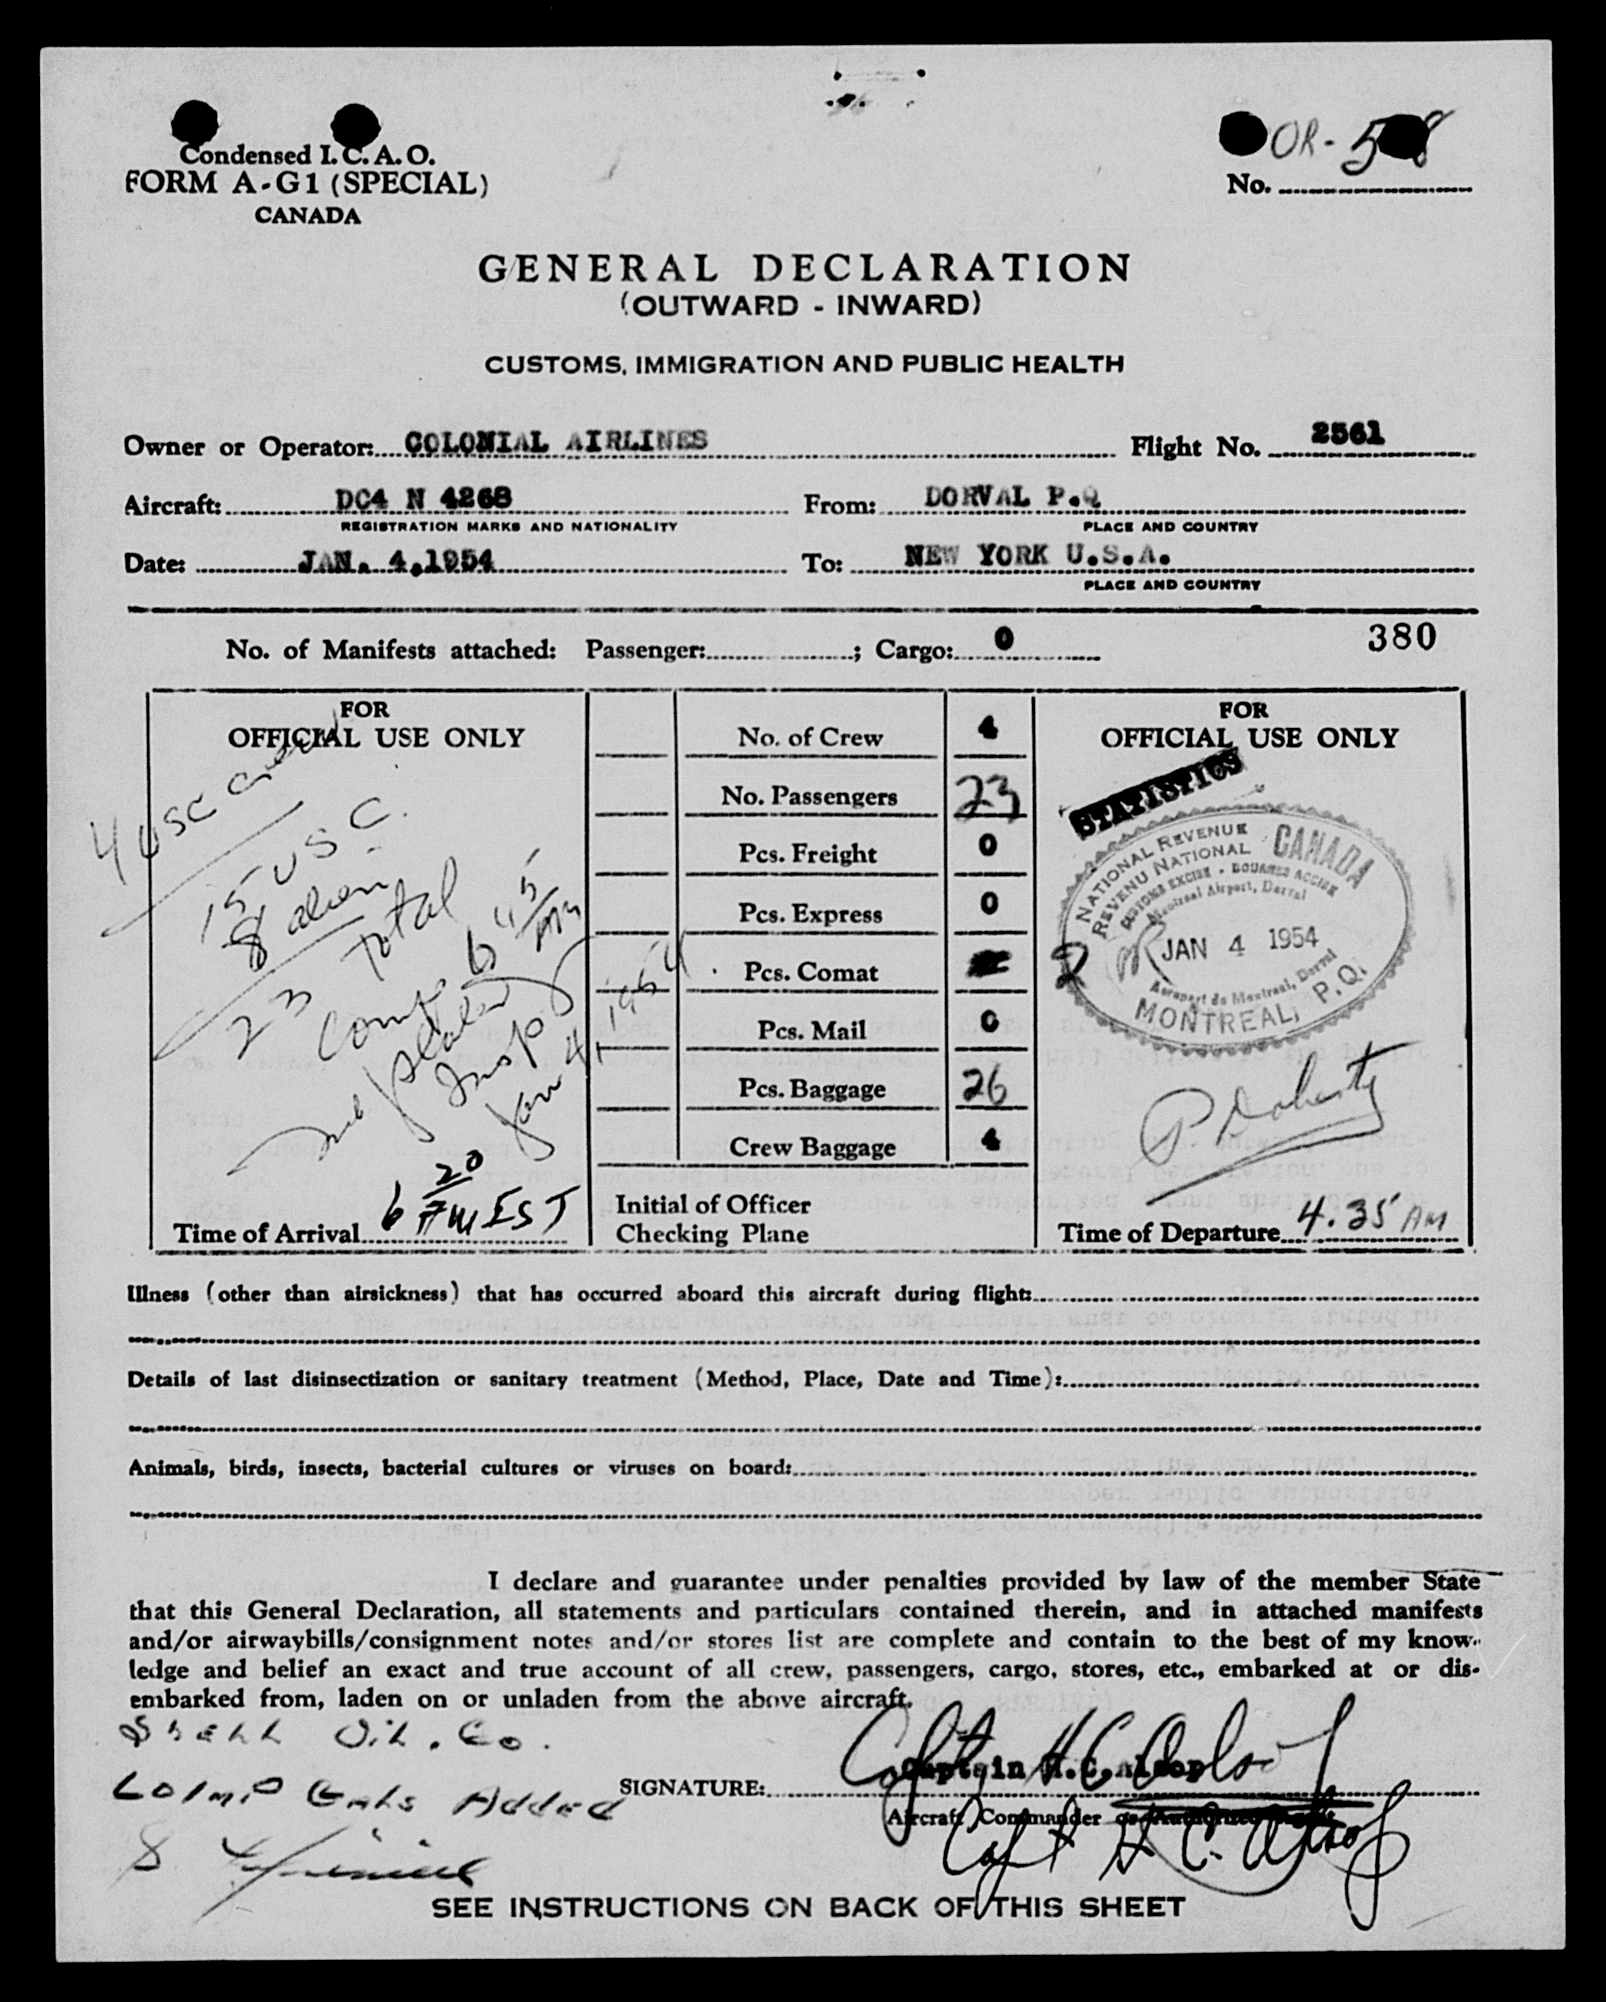 Condensed I.C.A.O.
FORM A-G1 (SPECIAL)
CANADA
OR-
No.
GENERAL DECLARATION
(OUTWARD - INWARD)
CUSTOMS, IMMIGRATION AND PUBLIC HEALTH
Owner or Operator: COLONIAL AIRLINES Flight No. 2561
Aircraft: DC4 N 4268 From: DORVAL P.Q
REGISTRATION MARKS AND NATIONALITY PLACE AND COUNTRY
Date: JAN. 4,1954 To: NEW YORK U.S.A.
PLACE AND COUNTRY
No. of Manifests attached: Passenger: ; Cargo: 0 380
FOR
OFFICIAL USE ONLY
4 USC Crew
15 USC
8 alien
23 Total
Comp. 6 45 AM
Insp
Jan 4, 1954
6 20 AM EST
Time of Arrival
No. of Crew 4
No. Passengers 23
Pcs. Freight 0
Pcs. Express 0
Pcs. Comat 2
Pcs. Mail 0
Pcs. Baggage 26
Crew Baggage 4
Initial of Officer
Checking Plane
FOR
OFFICIAL USE ONLY
STATISTICS
NATIONAL REVENUE CANADA
REVENU NATIONAL
CUSTOMS EXCISE - DOUANES ACCISE
Montreal Airport, Dorval
JAN 4 1954
Aeroport de Montreal, Dorval
MONTREAL, P.Q.
P Doherty
Time of Departure 4.35 AM
Illness (other than airsickness) that has occurred aboard this aircraft during flight:
Details of last disinsectization or sanitary treatment (Method, Place, Date and Time):
Animals, birds, insects, bacterial cultures or viruses on board:
I declare and guarantee under penalties provided by law of the member State
that this General Declaration, all statements and particulars contained therein, and in attached manifests
and/or airwaybills/consignment notes and/or stores list are complete and contain to the best of my know-
ledge and belief an exact and true account of all crew, passengers, cargo, stores, etc., embarked at or dis-
embarked from, laden on or unladen from the above aircraft.
Shell Oil. Co.
Gals Added
SIGNATURE: Captain H.C.Alsop
Aircraft Commander
Capt H. C. Alsop
SEE INSTRUCTIONS ON BACK OF THIS SHEET